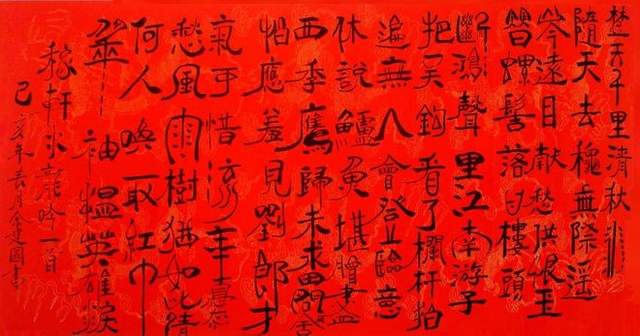 楚天千里清秋水
隨天去穐無際遥
岑遠目獻愁供恨玉
簪螺髻落日樓頭
斷鴻聲里江南游子
把吴鈎看了欄杆拍
遍無人會登臨意
休說鱸魚堪膾盡
西季鷹歸未求田問舍
怕應羞見劉郎才
氣可惜流年憂
愁風雨樹猶如此倩
何人唤取紅巾
翠袖揾英雄淚
稼軒水龍吟一首
己亥年春月金建國書